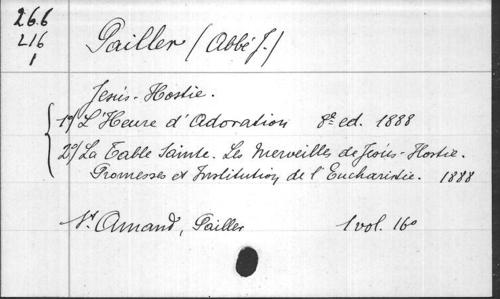 266
216
1
Pailler (Abbé J.)
Jésus-Hostie.
1º/ L'Heure d'Adoration 8e ed. 1888
2º/ La Table Sainte. Les Merveilles de Jésus-Hostie.
Promesses et Institution de l'Eucharistie. 1888
St Amand, Pailler 1 vol. 16º